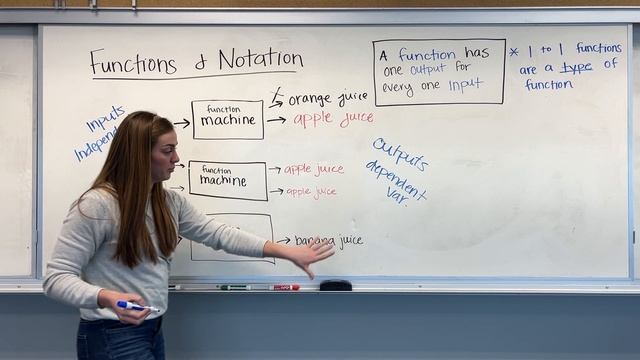 Functions & Notation
A function has
one output for
every one input
* 1 to 1 functions
are a type of
function
Inputs
function
machine
orange juice
apple juice
function
machine
apple juice
apple juice
Outputs
dependent
var.
banana juice